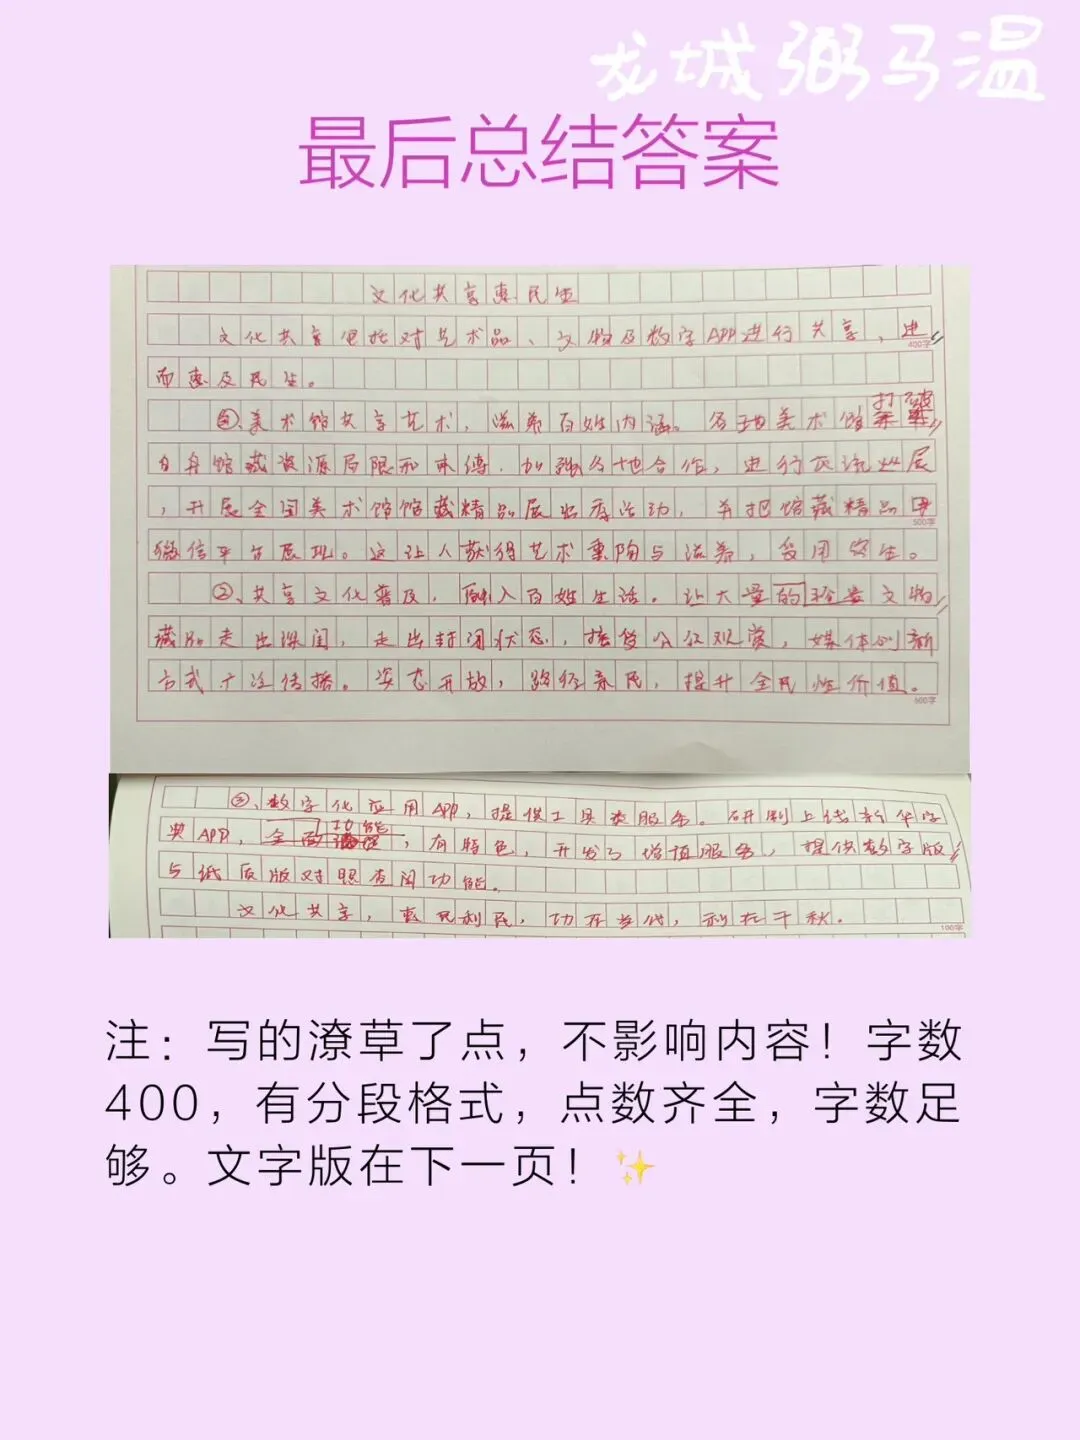 龙城弼马温
最后总结答案
文化共享惠民生
文化共享包括对艺术品、文物及数字APP进行共享，进
而惠及民生。
①、美术馆共享艺术，滋养百姓内涵。各地美术馆打破
自身馆藏资源局限和束缚，加强各地合作，进行交流巡展
，开展全国美术馆馆藏精品展出季活动，并把馆藏精品用
微信平台展现。这让人获得艺术熏陶与滋养，受用终生。
②、共享文化普及，融入百姓生活。让大量的珍贵文物
藏品走出深闺，走出封闭状态，接受公众观赏，媒体创新
方式广泛传播。姿态开放，路径亲民，提升全民性价值。
③、数字化应用APP，提供工具类服务。研制上线新华字
典APP，全面功能，有特色，开发了增值服务，提供数字版
与纸质版对照查阅功能。
文化共享，惠民利民，功在当代，利在千秋。
400字
500字
600字
100字
注：写的潦草了点，不影响内容！字数
400，有分段格式，点数齐全，字数足
够。文字版在下一页！✨